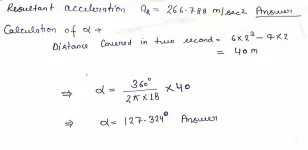 Resultant acceleration a_R = 266.788 m/sec2 Answer
Calculation of α →
Distance Covered in two second = 6×2³ - 4×2
= 40 m
⇒ α = 360° / 2π×18 × 40
⇒ α = 127.324° Answer